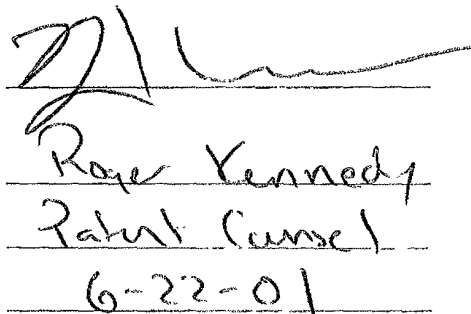 Roger Kennedy
Patent Counsel
6-22-01